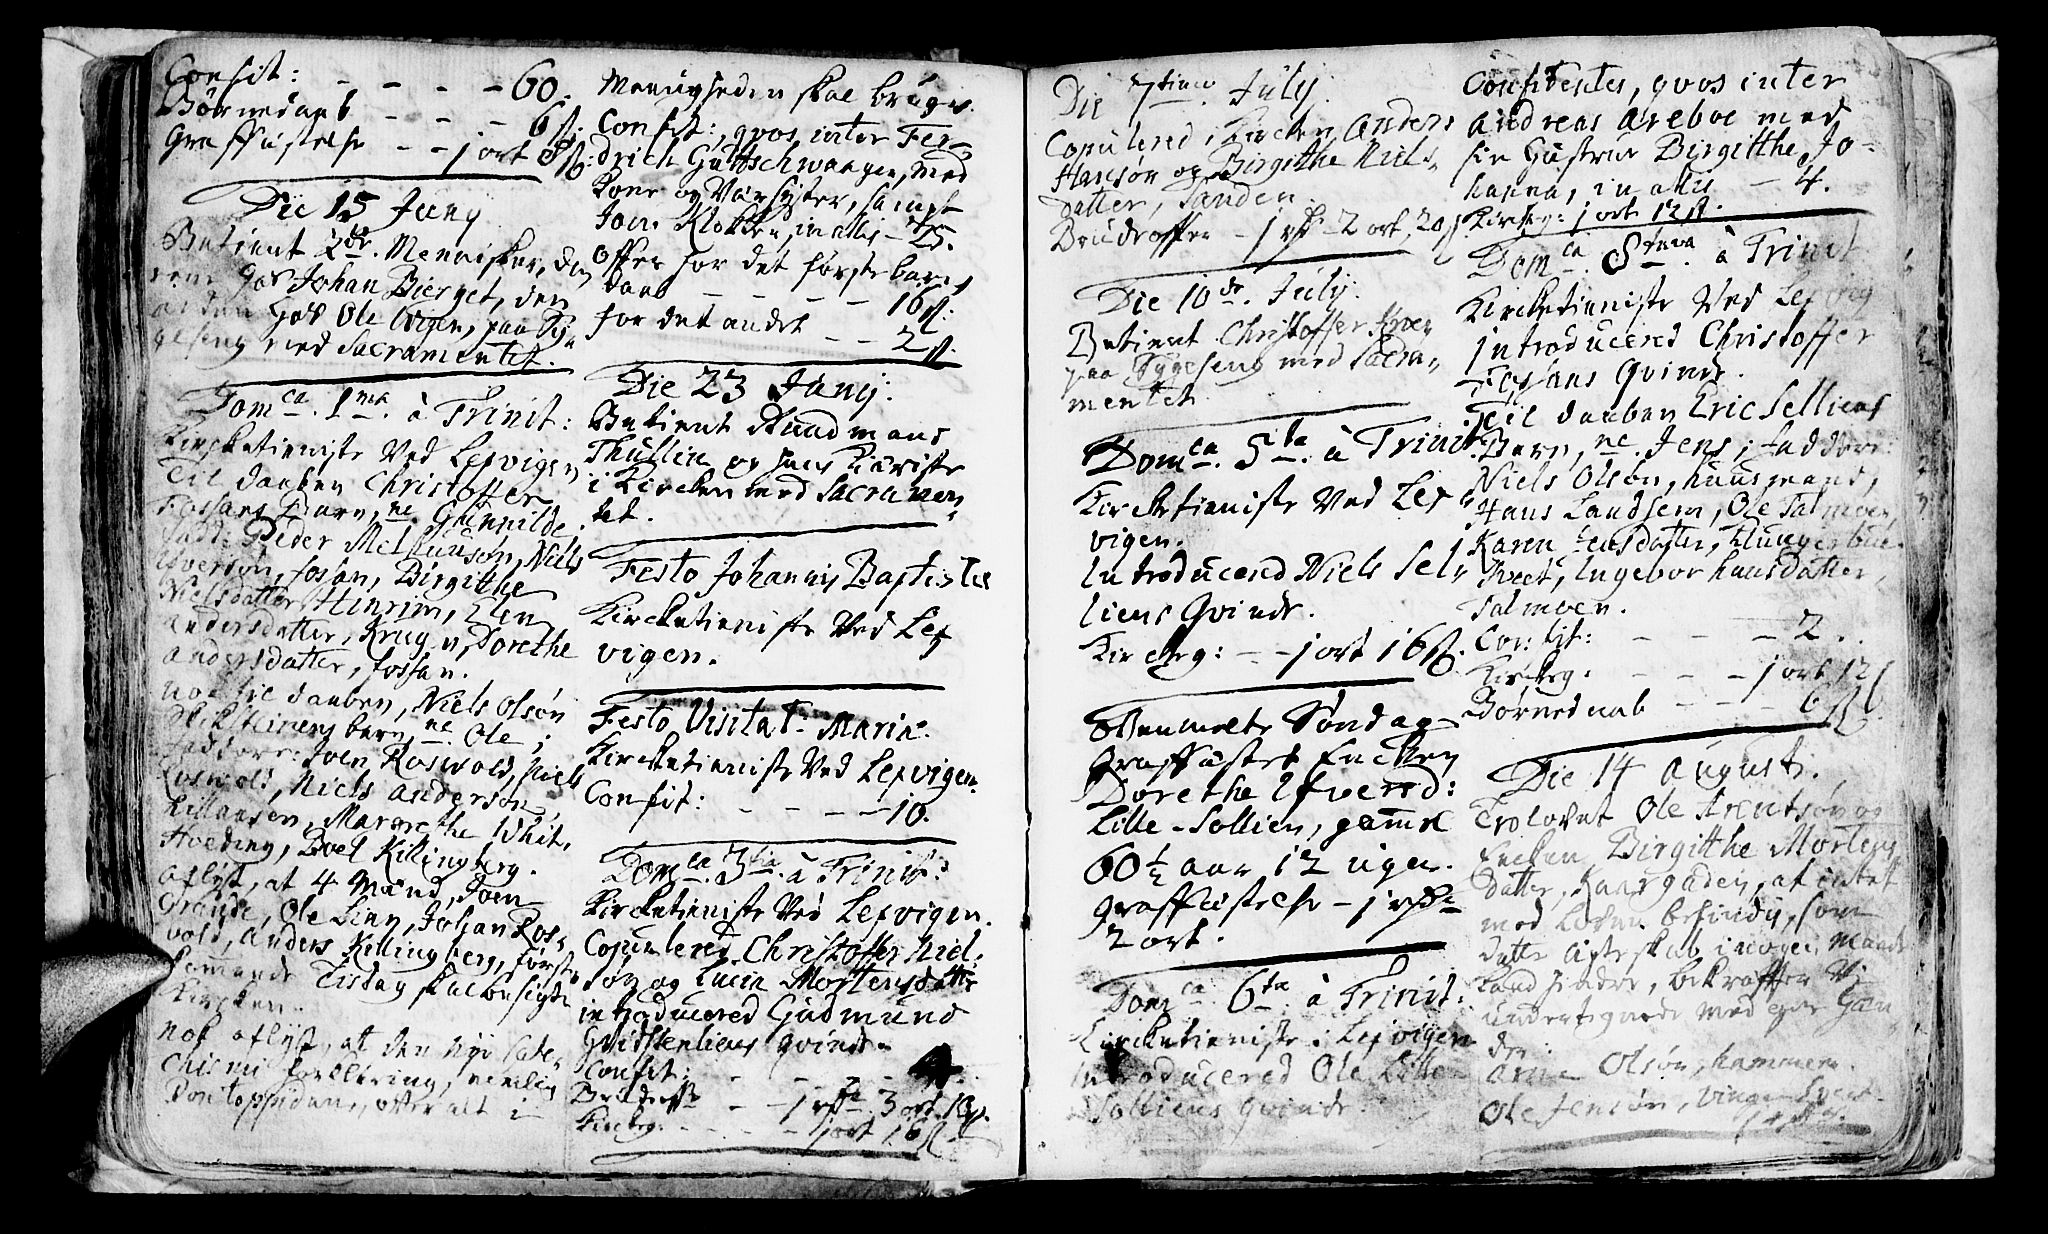 Confit: - - - - 60.
Børnedaab - - - 6 ß:
Graffæstelse - - 1 ort 8 ß:
Die 15 Juny
Betient 2de Mennisker, den
eene hos Johan Bierget, den
anden hos Ole Vigen, paa Sy-
geseng med Sacramentet.
Dom.ca 1.ma à Trinit:
Kircketieniste ved Lexvigen
Til daaben Christoffer
Fossans Barn, ne. Gunnilde.
Fadd: Peder Mel huusøn, Niels
Iversøn, Fosan, Birgitthe
Nielsdatter Hinrim, Elen
Andersdatter, Krugen, Dorethe
Andersdatter, Fossan.
nok til daaben, Niels Olsøn
barn, ne. Ole;
Faddere: Joen Roswold, Niels
Roswold, Niels Andersøn,
Killansen, Marrethe Whit,
Hoeding, Boel Killingberg.
Aflyst, at 4 Mænd, Joen
Grande, Ole Linn, Johan Ros-
vold, Anders Killingberg, først-
kommande Tisdag skal besigte
Kircken.
nok aflyst, at den nye Cate-
chismi forklaring, nemlig
Pontoppidans, efter alt i
Menigheden skal bruges.
Confit:, qvos inter Fri-
drich Guttschwaager, med
Kone og Værsyster, sampt
Joen Klokken, in allis - 25.
Offer for det første barns
daab - - - - 16 ß:
for det andet - - 2 ß.
Die 23 Junij:
Betient Studmand
Thullin og hans Kieriste
i Kircken med Sacramen-
tet.
Festo Johannis Baptistæ
Kircketieniste ved Lex
vigen.
Festo Visitat: Mariæ.
Kircketieniste ved Lexvigen.
Confit: - - - - 10.
Dom.ca 3.tia à Trinit:
Kircketieniste ved Lexvigen.
Copulered Christoffer Niel-
søn og Lucia Mortensdatter
introducered Gudmund
Hvidstenliens qvinde.
Confit: - - - - 4.
Brudeoff - - 1 rdr 3 ort 18 ß.
Kirckeg: - - - - 1 ort 16 ß.
Die 7timo July.
Copulered i Kircken Anders
Hansøn og Birgitthe Niels-
datter, Sanden.
Brudeoffer - 1 rdr 2 ort, 20 ß
Die 10de July.
Betient Christoffer
paa Sygeseng med Sacra-
mentet.
Dom.ca 5.ta à Trinit:
Kircketieniste ved Lex-
vigen.
Introducered Niels Sel-
liens Qvinde.
Kirckeg: - - 1 ort 16 ß.
Samme Søndag
Graffæstet Encken
Dorethe Ifversd:
Lille-Sollien, gammel
60 1/2 aar 12 uger.
Graffæstelse - 1 rdr
2 ort.
Dom.ca 6.ta à Trinit:
Kircketieniste i Lexvigen
Introducered Ole Lille-
Solliens qvinde.
Confitentes, qvos inter
Andreas Areboe med
sin Hustrue Birgitthe Jo-
hanna, in allis - 4.
Kirckeg: 1 ort 12 ß.
Dom.ca 8.tava à Trinit
Kircketieniste ved Lexvig
introducered Christoffer
Fossans Qvinde.
Til daaben EricSelliens
Barn, ne. Jens; Faddere:
Niels Olsøn, huusmand,
Hans Landsem, Ole Salmoen,
Karen Jensdatter, Klungerbue
tveet, Ingebor hansdatter,
Salmoen.
Confit: - - - - 2.
Kirckeg: - - - 1 ort 12 ß
Børnedaab - - - 6 ß.
Die 14 Augusti.
Trolovet Ole Arentsøn og
Encken Birgitthe Mortens
datter, Kaargaden, at intet
med befindes, som
dette Ægteskab i nogen maade
kand hindre, bekræffter vi
undertegnede med egne Hæn-
der.
Arne Olsøn, hammer.
Ole Jensøn,